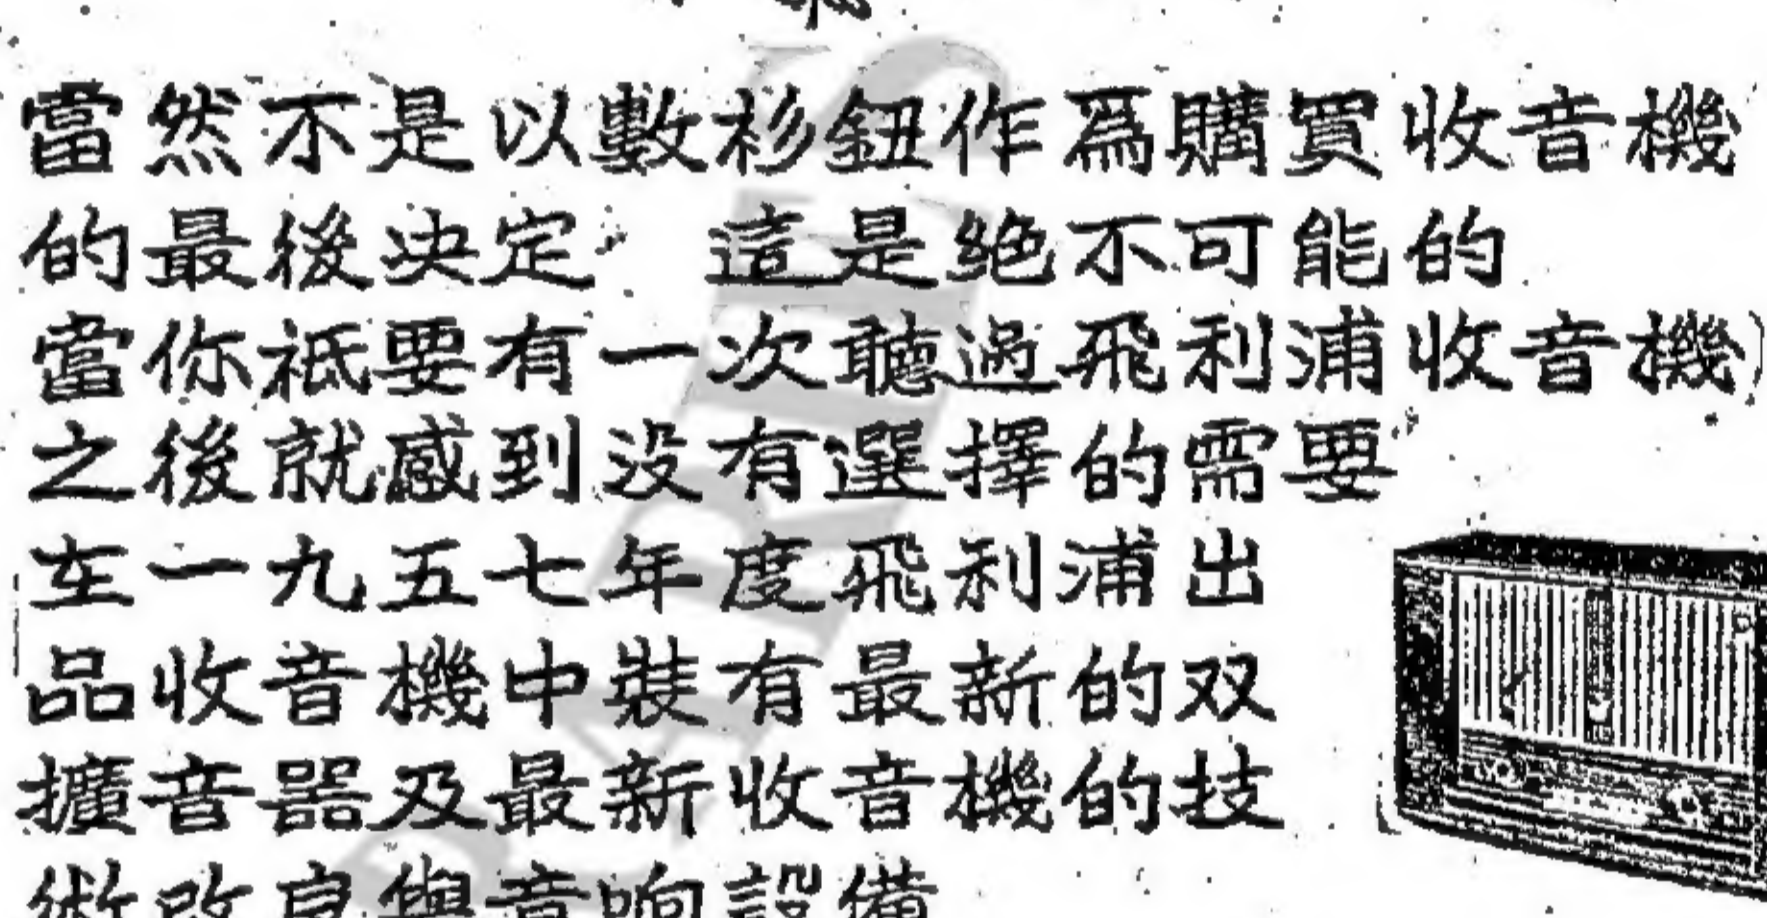 當然不是以數衫鈕作爲購買收音機
的最後決定 這是絶不可能的
當你祗要有一次聽過飛利浦收音機
之後就感到没有選擇的需要
在一九五七年度飛利浦出
品收音機中裝有最新的双
擴音器及最新收音機的技
術改良與音响設備